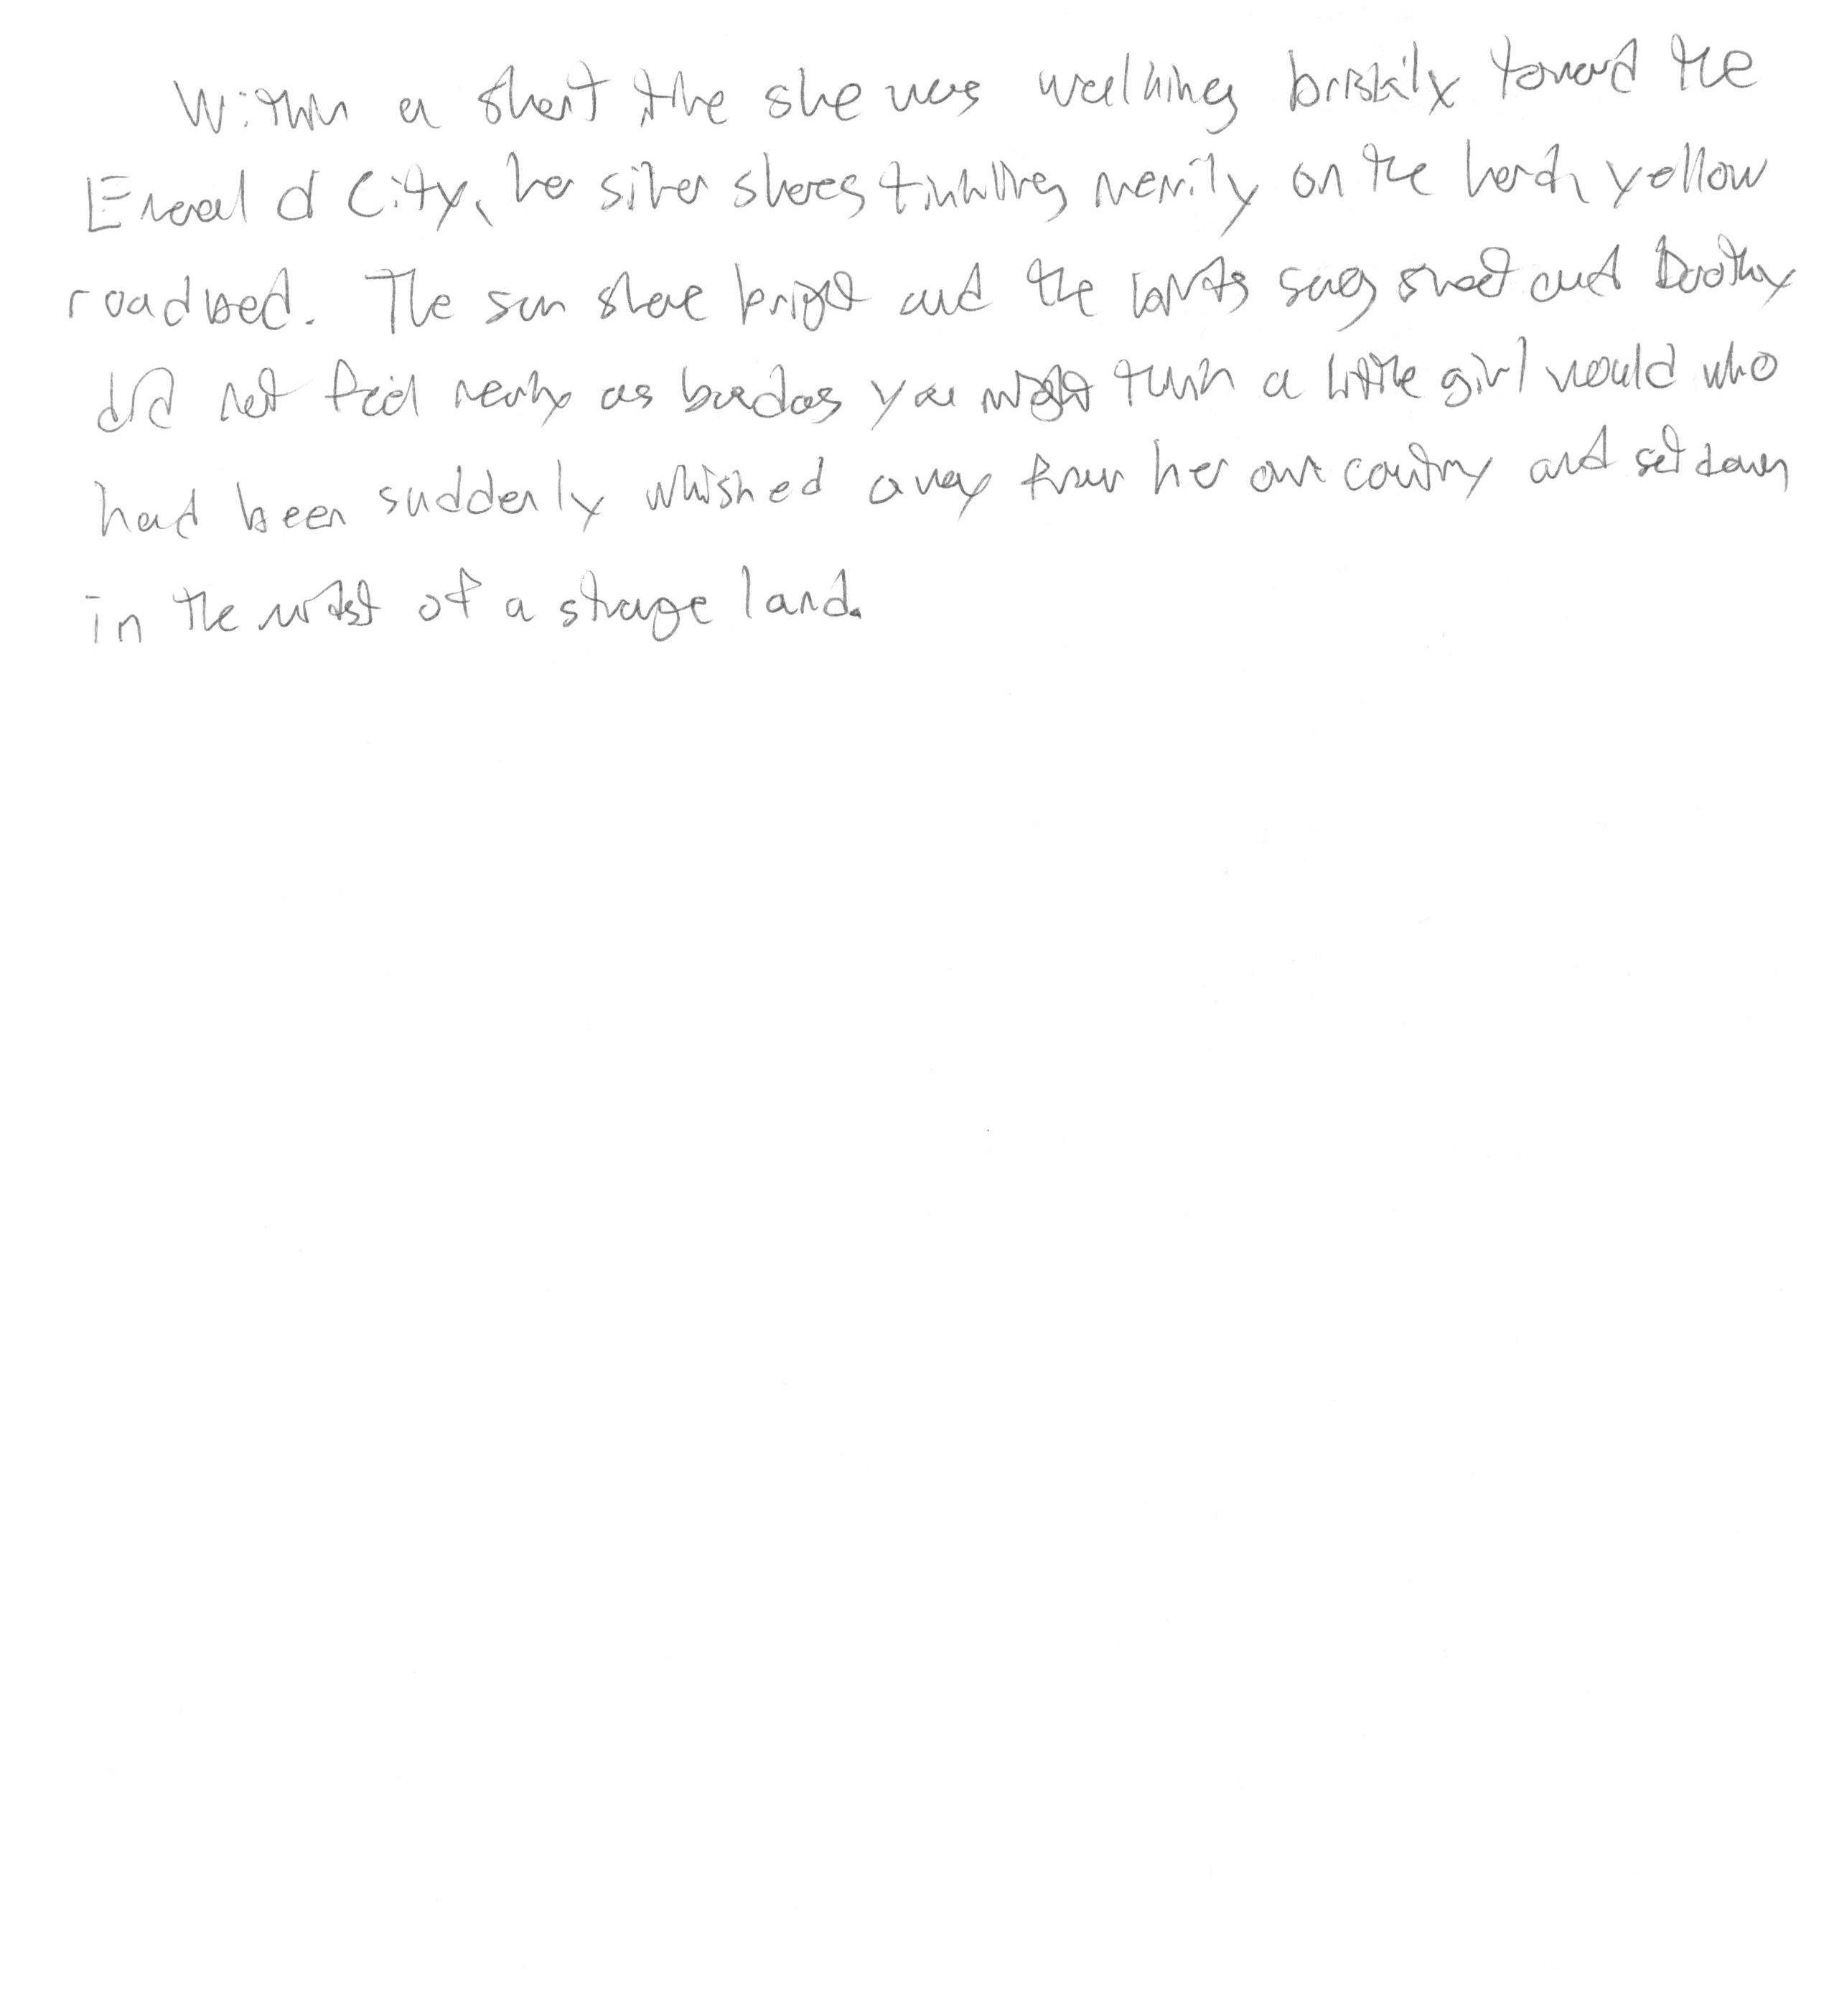 Within a short time she was walking briskly toward the
Emerald City, her silver shoes tinkling merrily on the hard, yellow
roadbed. The sun shone bright and the birds sang sweet and Dorothy
did not feel nearly as bad as you might think a little girl would who
had been suddenly whisked away from her own country and set down
in the midst of a strange land.